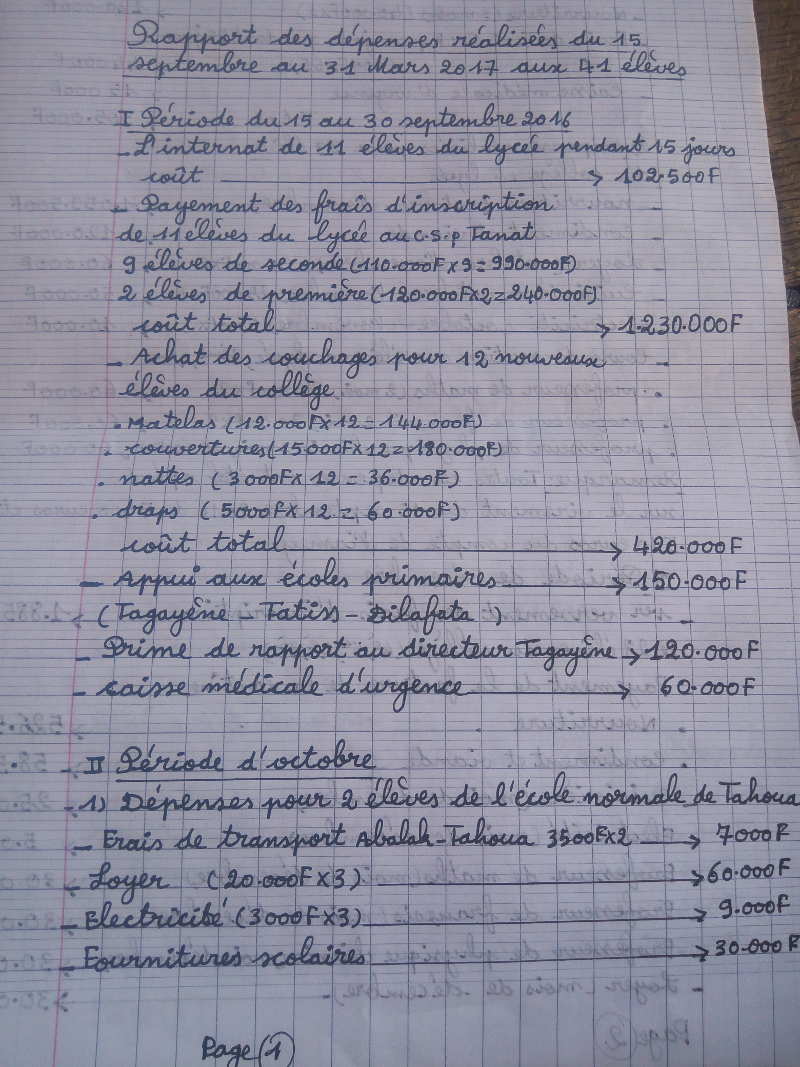 Rapport des dépenses réalisées du 15
septembre au 31 Mars 2017 aux 41 élèves
I Période du 15 au 30 septembre 2016
- L'internat de 11 élèves du lycée pendant 15 jours
coût → 102.500F
- Payement des frais d'inscription
de 11 élèves du lycée au C.S.P Tanat
9 élèves de seconde (110.000F x 9 = 990.000F)
2 élèves de première (120.000F x 2 = 240.000F)
coût total → 1.230.000F
- Achat des couchages pour 12 nouveaux
élèves du collège
. Matelas (12.000F x 12 = 144.000F)
. couvertures (15.000F x 12 = 180.000F)
. nattes (3000F x 12 = 36.000F)
. draps (5000F x 12 = 60.000F)
coût total → 420.000F
- Appui aux écoles primaires → 150.000F
(Tagayêne - Tatiss - Dilafata) -
- Prime de rapport au directeur Tagayêne → 120.000F
- caisse médicale d'urgence → 60.000F
- II Période d'octobre
- 1) Dépenses pour 2 élèves de l'école normale de Tahoua
- Frais de transport Abalak-Tahoua 3500F x 2 → 7000F
- Loyer (20.000F x 3) → 60.000F
- Electricité (3000F x 3) → 9.000F
- Fournitures scolaires → 30.000F
Page (1)